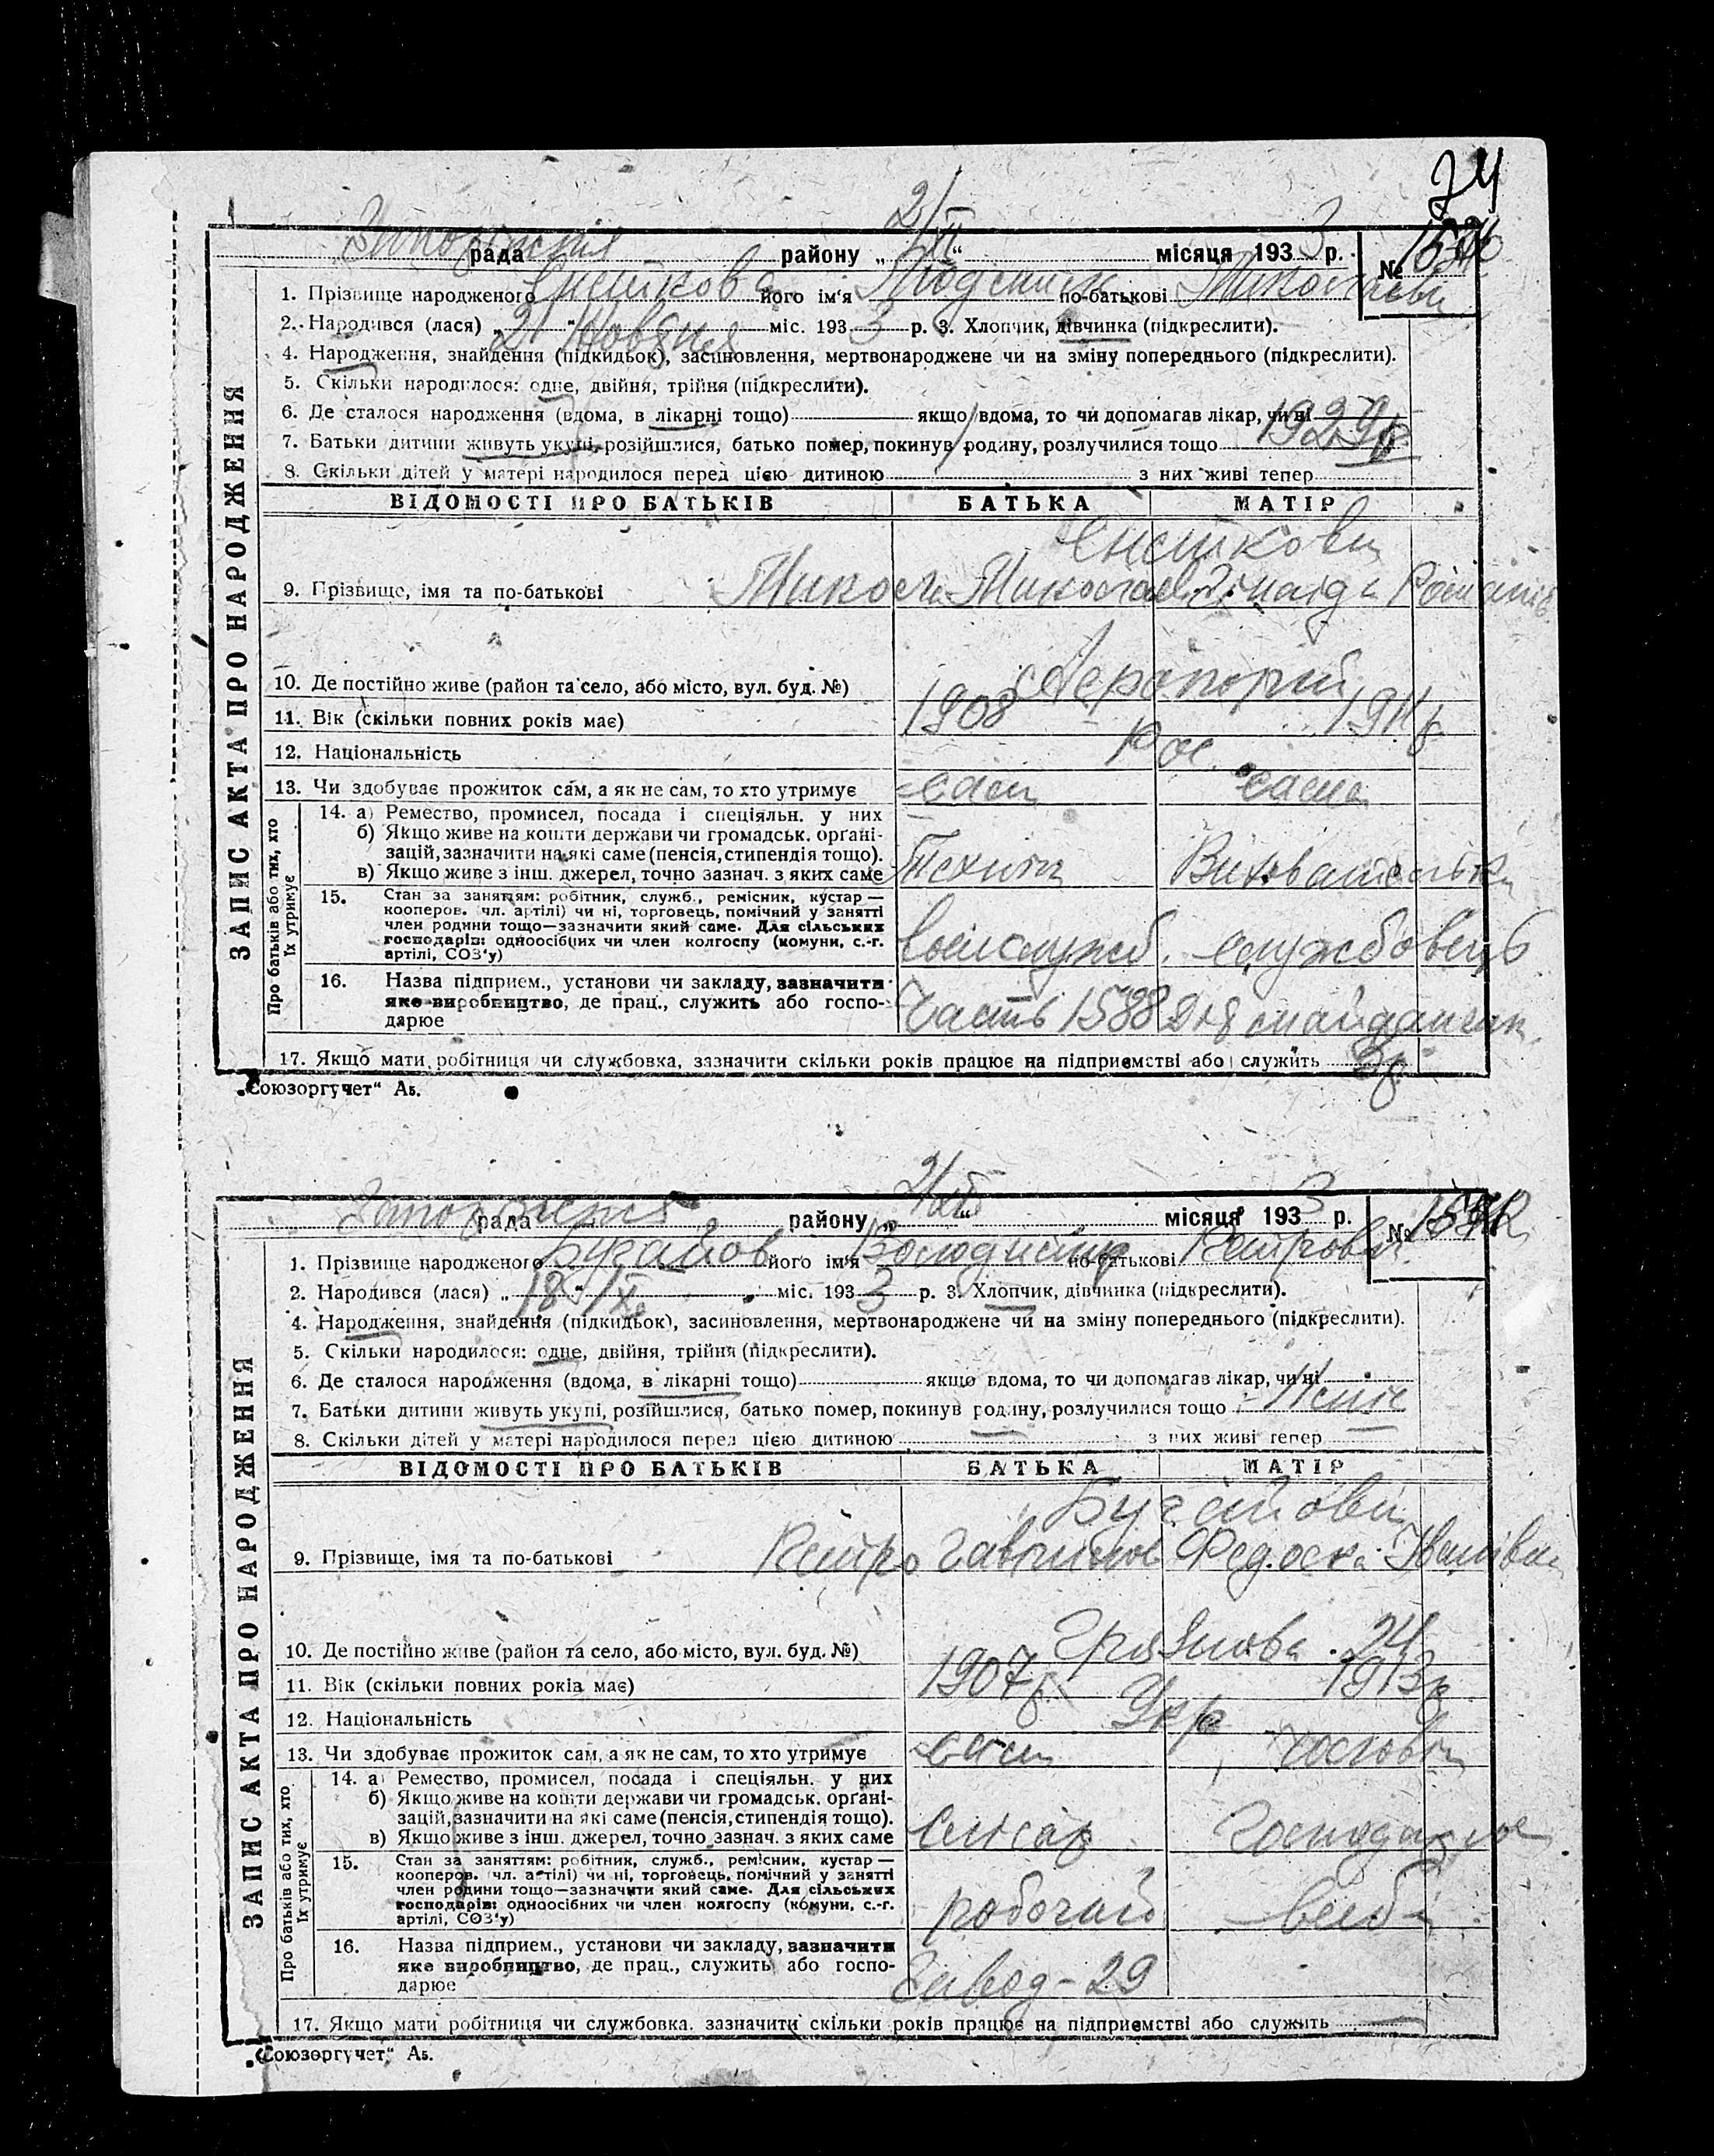 74
2/XI
рада району „ “ місяця 193 3 р. №
1. Прізвище народженого його ім'я по-батькові
2. Народився (лася) „21“ міс. 193 3 р. 3. Хлопчик, дівчинка (підкреслити).
4. Народження, знайдення (підкидьок), засиновлення, мертвонароджене чи на зміну попереднього (підкреслити).
5. Скільки народилося: одне, двійня, трійня (підкреслити).
6. Де сталося народження (вдома, в лікарні тощо) якщо вдома, то чи допомагав лікар, чи ні
7. Батьки дитини живуть укупі, розійшлися, батько помер, покинув родину, розлучилися тощо 1929р
8. Скільки дітей у матері народилося перед цією дитиною з них живі тепер
ЗАПИС АКТА ПРО НАРОДЖЕННЯ
ВІДОМОСТІ ПРО БАТЬКІВ БАТЬКА МАТІР
9. Прізвище, імя та по-батькові Микола
10. Де постійно живе (район та село, або місто, вул. буд. №)
11. Вік (скільки повних років має) 1908 1911р
12. Національність Рос.
13. Чи здобуває прожиток сам, а як не сам, то хто утримує сам сама
Про батьків або тих, хто
їх утримує
14. а) Ремество, промисел, посада і спеціяльн. у них
б) Якщо живе на кошти держави чи громадськ. орґані-
зацій, зазначити на які саме (пенсія, стипендія тощо).
в) Якщо живе з інш. джерел, точно зазнач. з яких саме Технік Вихователька
15. Стан за заняттям: робітник, служб., ремісник, кустар —
кооперов. чл. артілі) чи ні, торговець, помічний у занятті
член родини тощо—зазначити який саме. Для сільських
господарів: одноосібних чи член колгоспу (комуни, с.-г.
артілі, СОЗ'у) службовець
16. Назва підприєм., установи чи закладу, зазначити
яке виробництво, де прац., служить або госпо-
дарює Часть 1588 Дит майданчик
17. Якщо мати робітниця чи службовка, зазначити скільки років працює на підприємстві або служить
„Союзоргучет“ Аз.
2/XI
рада району „ “ місяця 193 3 р. №
1. Прізвище народженого Бугайов його ім'я Володимир по-батькові Петрович
2. Народився (лася) „18“ /X міс. 193 3 р. 3. Хлопчик, дівчинка (підкреслити).
4. Народження, знайдення (підкидьок), засиновлення, мертвонароджене чи на зміну попереднього (підкреслити).
5. Скільки народилося: одне, двійня, трійня (підкреслити).
6. Де сталося народження (вдома, в лікарні тощо) якщо вдома, то чи допомагав лікар, чи ні
7. Батьки дитини живуть укупі, розійшлися, батько помер, покинув родину, розлучилися тощо
8. Скільки дітей у матері народилося перед цією дитиною з них живі тепер
ЗАПИС АКТА ПРО НАРОДЖЕННЯ
ВІДОМОСТІ ПРО БАТЬКІВ БАТЬКА МАТІР
Бугайови
9. Прізвище, імя та по-батькові Петро Федоска Іванівна
10. Де постійно живе (район та село, або місто, вул. буд. №) 24
11. Вік (скільки повних років має) 1907р 1913р
12. Національність Укр
13. Чи здобуває прожиток сам, а як не сам, то хто утримує сам
Про батьків або тих, хто
їх утримує
14. а) Ремество, промисел, посада і спеціяльн. у них
б) Якщо живе на кошти держави чи громадськ. орґані-
зацій, зазначити на які саме (пенсія, стипендія тощо).
в) Якщо живе з інш. джерел, точно зазнач. з яких саме Слюсар Господарює
15. Стан за заняттям: робітник, служб., ремісник, кустар —
кооперов. чл. артілі) чи ні, торговець, помічний у занятті
член родини тощо—зазначити який саме. Для сільських
господарів: одноосібних чи член колгоспу (комуни, с.-г.
артілі, СОЗ'у) робочий
16. Назва підприєм., установи чи закладу, зазначити
яке виробництво, де прац., служить або госпо-
дарює Завод - 29
17. Якщо мати робітниця чи службовка, зазначити скільки років працює на підприємстві або служить
„Союзоргучет“ Аз.